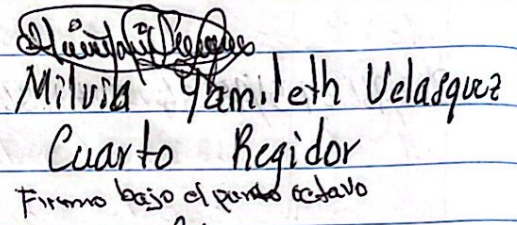 Milvia Yamileth Velasquez
Cuarto Regidor
Firmo bajo el punto octavo